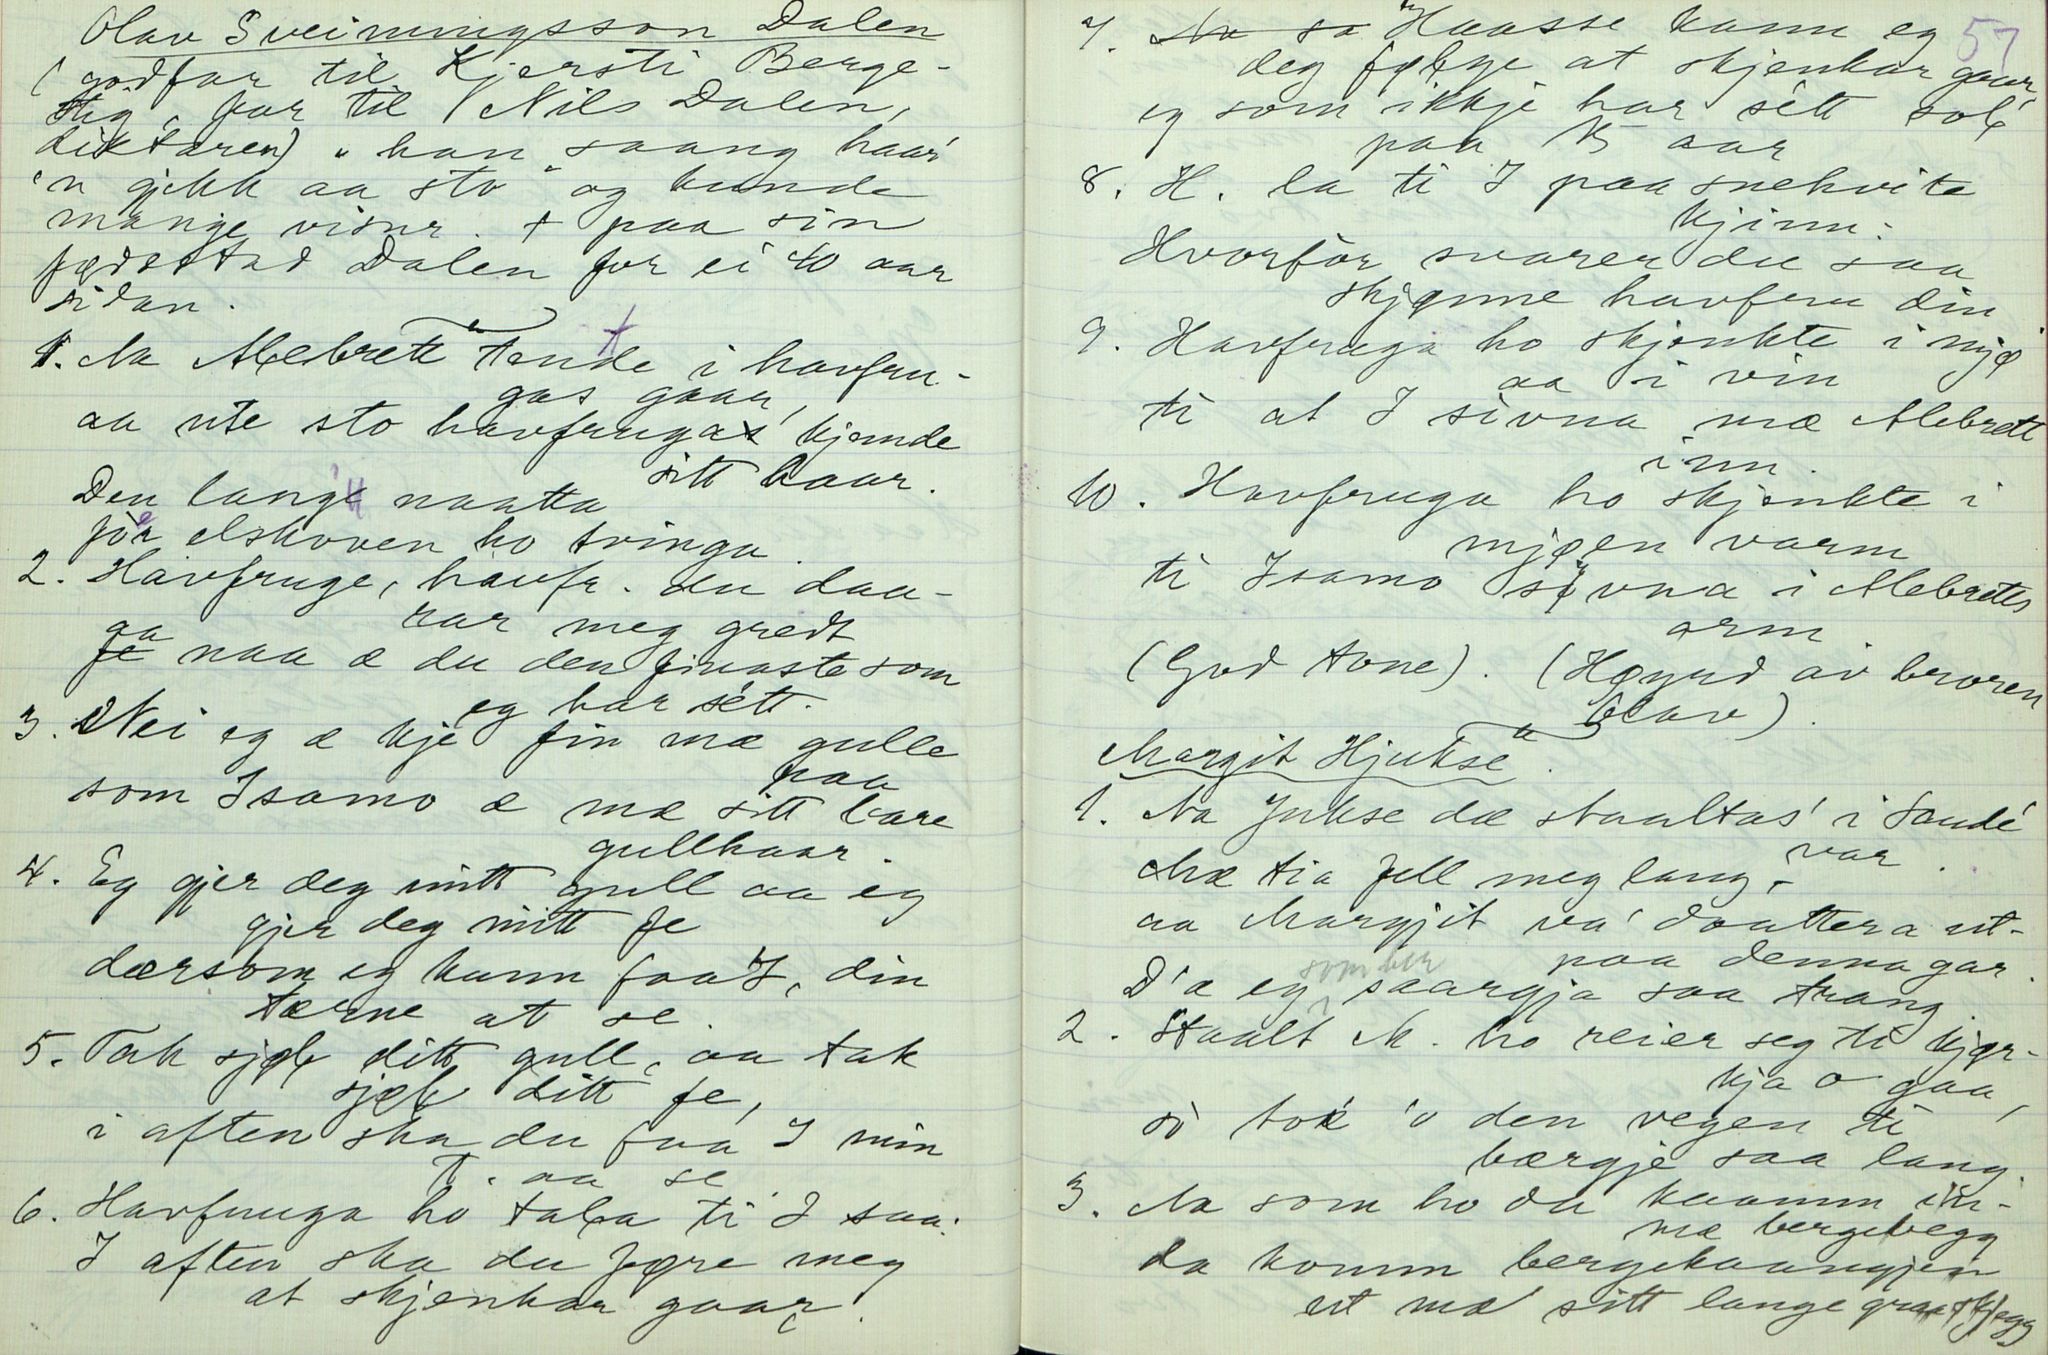 Olav Sveinungsson Dalen
(godfar til Kjersti Berge-
stig, far til Nils Dalen,
diktaren) "han saang haar
'n gjekk aa sto" og kunde
mange visur. † paa sin
fødestad Dalen for ei 40 aar
sidan.
1. Aa Alebrett tende i havfru-
gas gaar,
aa ute sto havfruga kjemde
sitt haar.
Den lange naatta
for elskoven ho tvinga.
2. Havfruge, havfr. du daa-
rar meg gredt
ga naa æ du den finaste som
eg har sétt.
3. Nei eg æ kje fin mæ gulle
paa
som Isamo æ mæ sitt bare
gullhaar.
4. Eg gjer deg mitt gull aa eg
gjer deg mitt fe
dersom eg kann faa I, din
tærne at se.
5. Tak sjøl ditt gull, aa tak
sjøl ditt fe,
i aften ska du faa I min
T. aa se.
6. Havfruga ho tala ti I saa:
I aften ska du føre meg
at skjenkar gaar.
57
7. Haasse kann eg
deg følgje at skjenkar gaar,
eg som ikkje har sétt sol
paa 15 aar
8. H. la ti I paa snehvite
kjinn:
Hvorfor svarer du saa
skjønne havfru din
9. Havfruga ho skjenkte i mjø
aa i vin
ti at I sivna mæ Alebrett
inn.
10. Havfruga ho skjenkte i
mjøen varm
ti Isamo sivna i Alebretts
arm.
(God tone). (Høyrd av broren
Olav).
Margit Hjukse.
1. Aa Jukse dæ staaltas' i Saude
var.
Mæ tia fell meg lang,
aa Margjit va' daattera ut-
paa denna gar.
D'æ eg som ber saargja saa trang
2. Staalt M. ho reier seg ti kjør-
kja o gaa,
so tok 'o den vegen ti
bergje saa lang.
3. Aa som ho da kaamm in-
mæ bergebegg
da komm bergekaangjen
ut mæ sitt lange graa skjegg